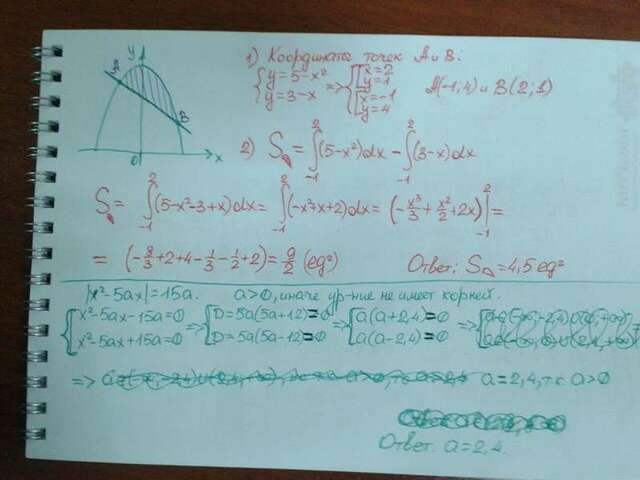 y
A
B
0
x
1) Координаты точек A и B:
{y=5-x² {y=3-x => [{x=2 y=1 {x=-1 y=4 A(-1;4) и B(2;1)
2) S = ∫₋₁² (5-x²)dx - ∫₋₁² (3-x)dx
S = ∫₋₁² (5-x²-3+x)dx = ∫₋₁² (-x²+x+2)dx = (-x³/3 + x²/2 + 2x)|₋₁² =
= (-8/3+2+4-1/3-1/2+2) = 9/2 (ед²) Ответ: S=4,5 ед²
|x²-5ax|=15a. a>0, иначе ур-ние не имеет корней.
{x²-5ax-15a=0 x²-5ax+15a=0 => {D=5a(5a+12)=0 D=5a(5a-12)=0 => {a(a+2,4)=0 a(a-2,4)=0 =>
=> a=2,4, т.к. a>0
Ответ: a=2,4.